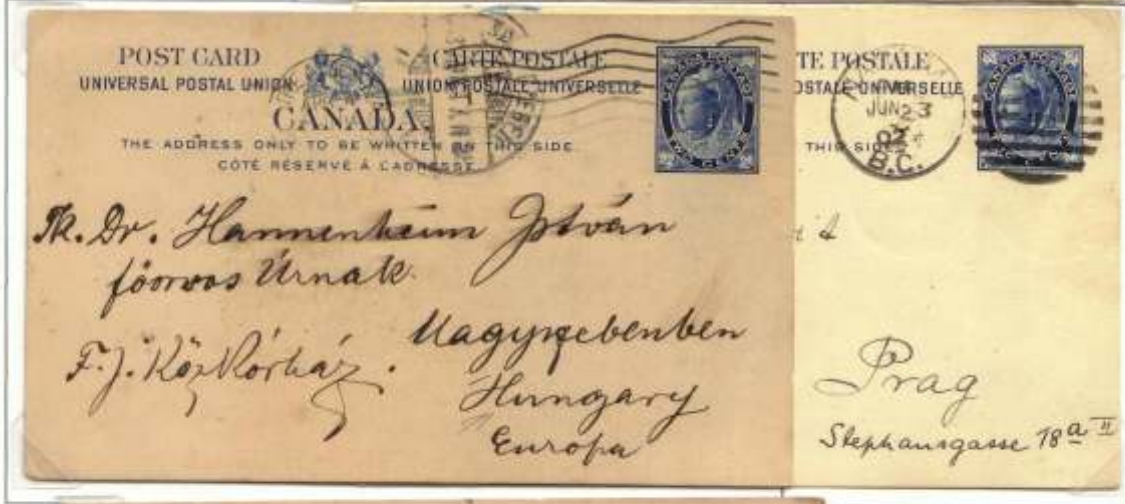 POST CARD CARTE POSTALE
UNIVERSAL POSTAL UNION UNION POSTALE UNIVERSELLE
CANADA.
THE ADDRESS ONLY TO BE WRITTEN ON THIS SIDE.
CÔTÉ RÉSERVÉ À L'ADRESSE
CANADA POSTAGE
TWO CENTS
Tk. Dr. Hannenheim István
főorvos Úrnak.
F. J. Közkórház.
Nagyszebenben
Hungary
Europa
TE POSTALE
OSTALE UNIVERSELLE
THIS SIDE
CANADA POSTAGE
JUN 23
B.C.
Prag
Stephansgasse 18a II